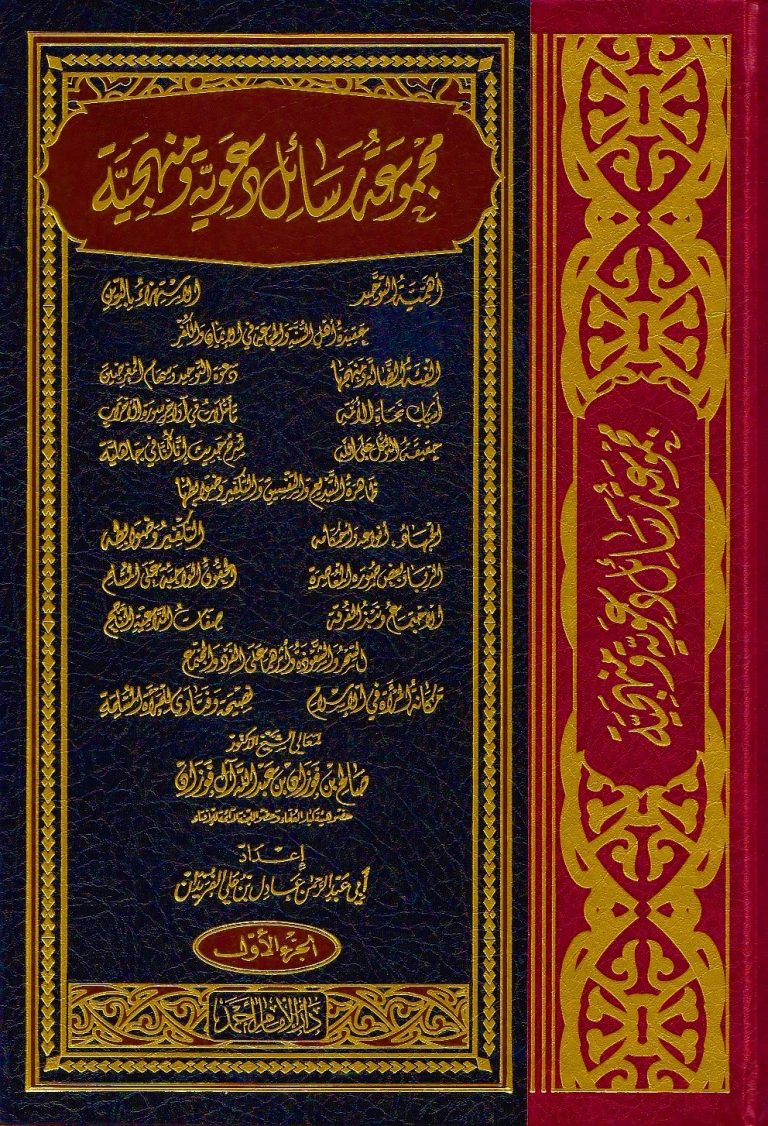 مجموعة رسائل دعوية ومنهجية
أهمية التوحيد الاستهزاء بالدين
عقيدة أهل السنة والجماعة في الإيمان والكفر
الفئة الضالة ومنهجها دعوة التوحيد وسهام المغرضين
أسباب نجاة الأمة تأملات في أواخر سورة الأحزاب
حقيقة التوكل على الله شرح حديث إنا كنا في جاهلية
ظاهرة التبديع والتفسيق والتكفير وضوابطها
الجهاد، أنواعه وأحكامه التكفير وضوابطه
الربا وبعض صوره المعاصرة الحقوق الواجبة على المسلم
الاجتماع ونبذ الفرقة صفات الداعية الناجح
السحر والشعوذة وأثرهما على الفرد والمجتمع
مكانة المرأة في الإسلام نصيحة وفتاوى للمرأة المسلمة
لمعالي الشيخ الدكتور
صالح بن فوزان بن عبد الله آل فوزان
عضو هيئة كبار العلماء وعضو اللجنة الدائمة للإفتاء
إعداد
أبي عبد الرحمن عادل بن علي الفريدان
الجزء الأول
دار الإمام أحمد
مجموعة رسائل دعوية ومنهجية